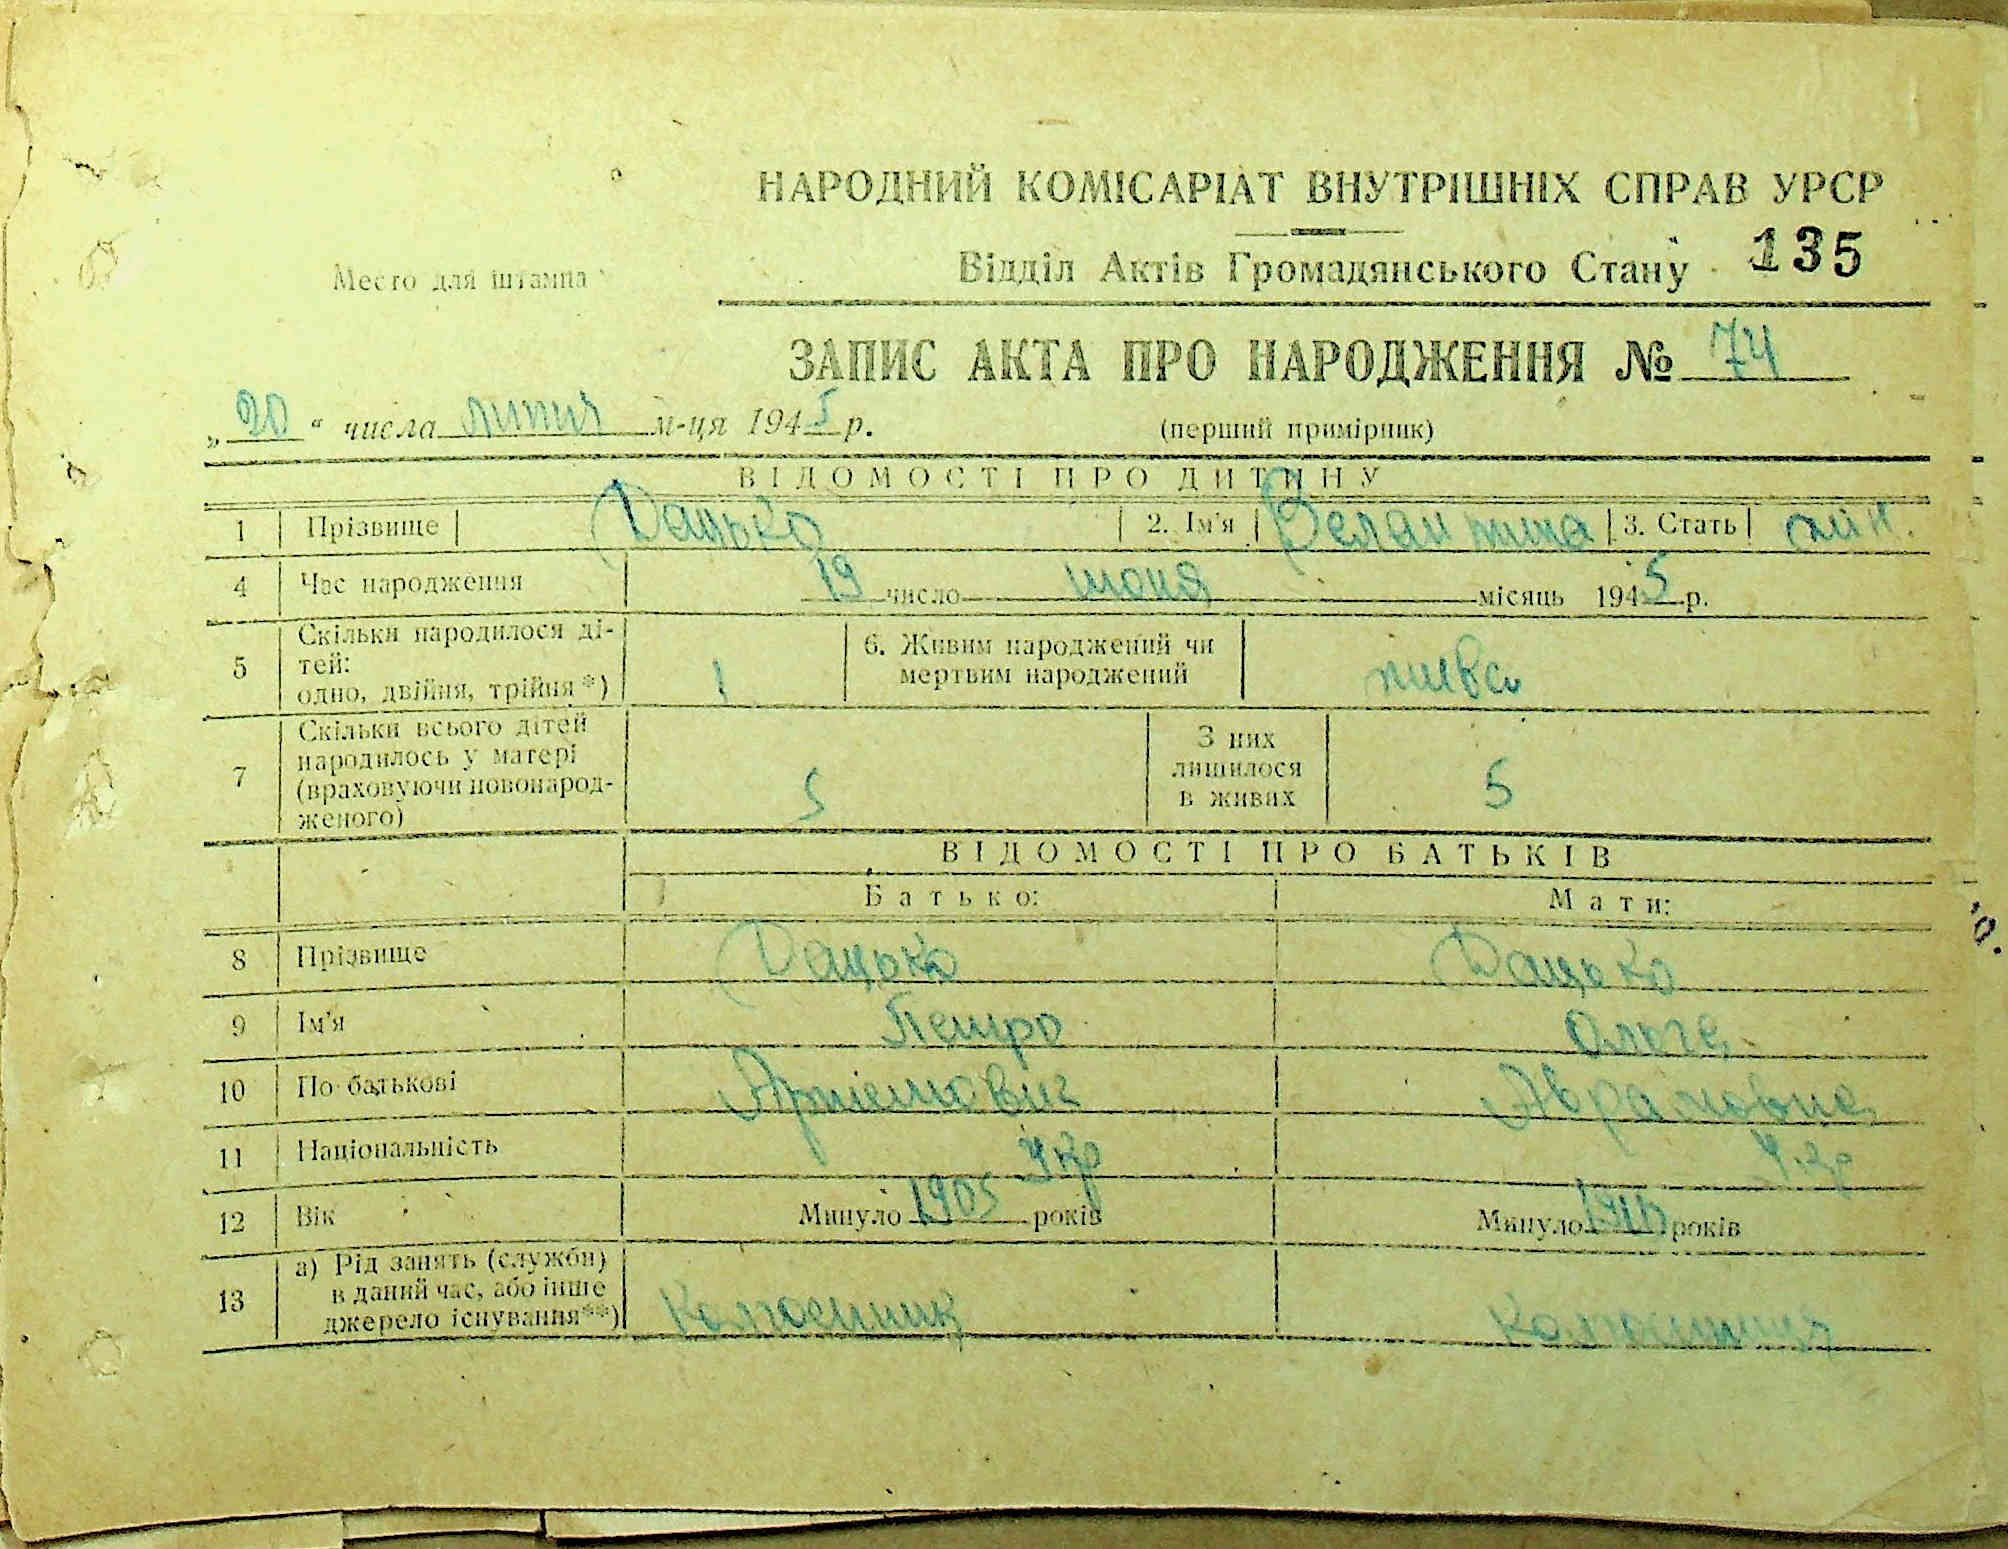 НАРОДНИЙ КОМІСАРІАТ ВНУТРІШНІХ СПРАВ УРСР
Відділ Актів Громадянського Стану 135
Место для штампа
ЗАПИС АКТА ПРО НАРОДЖЕННЯ № 74
„20“ числа липня м-ця 1945 р. (перший примірник)
ВІДОМОСТІ ПРО ДИТИНУ
1 Прізвище Дацько 2. Ім'я 3. Стать
4 Час народження 19 число июня місяць 1945 р.
5 Скільки народилося ді-
тей:
одно, двійня, трійня*) 1
6. Живим народжений чи
мертвим народжений жива
7 Скільки всього дітей
народилось у матері
(враховуючи новонарод-
женого) 5
З них
лишилося
в живих 5
ВІДОМОСТІ ПРО БАТЬКІВ
Батько: Мати:
8 Прізвище Дацько Дацько
9 Ім'я Петро Ольга
10 По батькові Артемович Аврамовна
11 Національність Укр Укр
12 Вік Минуло 1905 років Минуло років
13 а) Рід занять (служби)
в даний час, або інше
джерело існування**) Колгоспник Колгоспниця